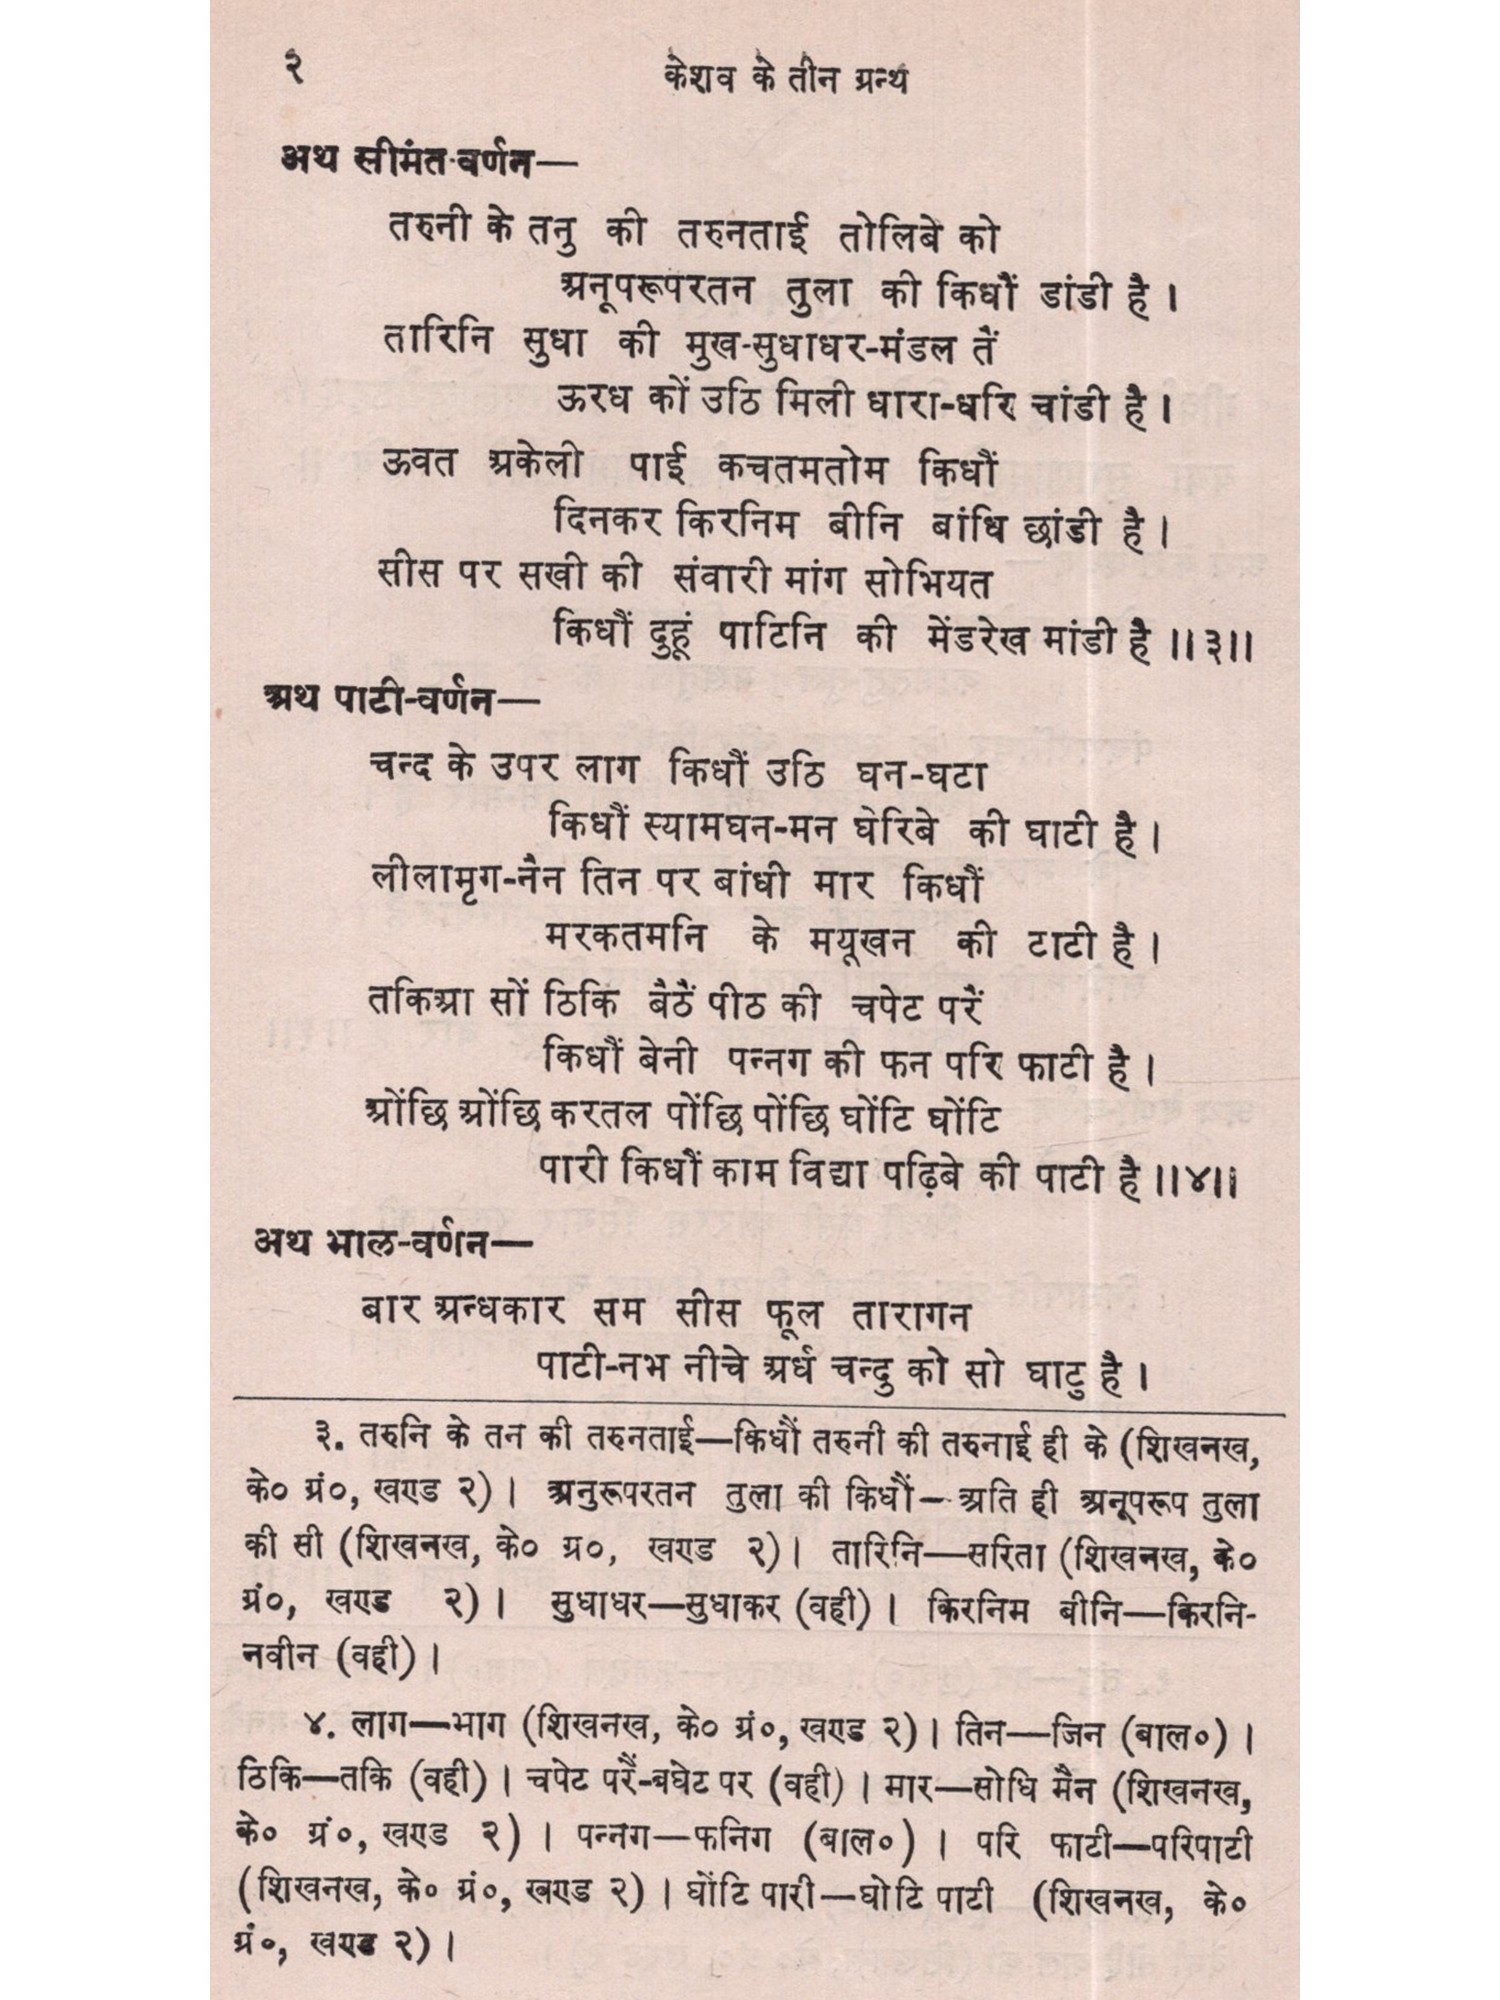 २ केशव के तीन ग्रन्थ
अथ सीमंत-वर्णन—
तरुनी के तनु की तरुनताई तोलिबे को
अनूपरूपरतन तुला की किधौं डांडी है ।
तारिनि सुधा की मुख-सुधाधर-मंडल तें
ऊरध कों उठि मिली धारा-धरि चांडी है ।
ऊवत अकेली पाई कचतमतोम किधौं
दिनकर किरनिम बीनि बांधि छांडी है ।
सीस पर सखी की संवारी मांग सोभियत
किधौं दुहूं पाटिनि की मेंडरेख मांडी है ।।३।।
अथ पाटी-वर्णन—
चन्द के उपर लाग किधौं उठि घन-घटा
किधौं स्यामघन-मन घेरिबे की घाटी है ।
लीलामृग-नैन तिन पर बांधी मार किधौं
मरकतमनि के मयूखन की टाटी है ।
तकिआ सों ठिकि बैठें पीठ की चपेट परें
किधौं बेनी पन्नग की फन परि फाटी है ।
ओंछि ओंछि करतल पोंछि पोंछि घोंटि घोंटि
पारी किधौं काम विद्या पढ़िबे की पाटी है ।।४।।
अथ भाल-वर्णन—
बार अन्धकार सम सीस फूल तारागन
पाटी-नभ नीचे अर्ध चन्दु को सो घाटु है ।
३. तरुनि के तन की तरुनताई—किधौं तरुनी की तरुनाई ही के (शिखनख,
के० ग्रं०, खण्ड २) । अनुरूपरतन तुला की किधौं—अति ही अनूपरूप तुला
की सी (शिखनख, के० ग्र०, खण्ड २) । तारिनि—सरिता (शिखनख, के०
ग्रं०, खण्ड २) । सुधाधर—सुधाकर (वही) । किरनिम बीनि—किरनि-
नवीन (वही) ।
४. लाग—भाग (शिखनख, के० ग्रं०, खण्ड २) । तिन—जिन (बाल०) ।
ठिकि—तकि (वही) । चपेट परें-बघेट पर (वही) । मार—सोधि मैन (शिखनख,
के० ग्रं०, खण्ड २) । पन्नग—फनिग (बाल०) । परि फाटी—परिपाटी
(शिखनख, के० ग्रं०, खण्ड २) । घोंटि पारी—घोटि पाटी (शिखनख, के०
ग्रं०, खण्ड २) ।